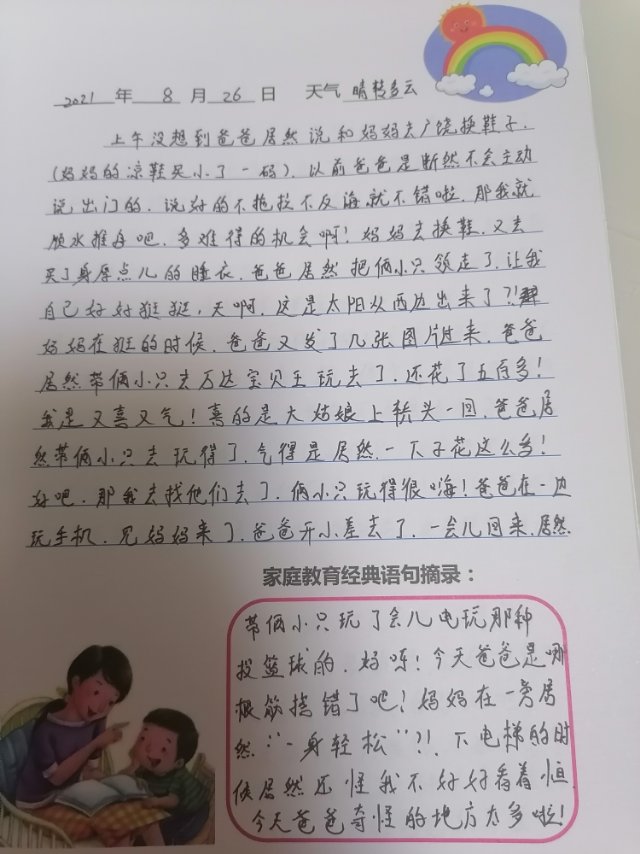 2021 年 8 月 26 日 天气 晴转多云
上午没想到爸爸居然说和妈妈去广饶换鞋子.
(妈妈的凉鞋买小了一码). 以前爸爸是断然不会主动
说出门的. 说好的不拖拉不反悔就不错啦. 那我就
顺水推舟吧. 多难得的机会啊! 妈妈去换鞋. 又去
买了身厚点儿的睡衣. 爸爸居然把俩小只领走了. 让我
自己好好逛逛, 天啊. 这是太阳从西边出来了?!
妈妈在逛的时候. 爸爸又发了几张图片过来. 爸爸
居然带俩小只去万达宝贝王玩去了. 还花了五百多!
我是又喜又气! 喜的是大姑娘上轿头一回. 爸爸居
然带俩小只去玩得了. 气得是居然一下子花这么多!
好吧. 那我去找他们去了. 俩小只玩得很嗨! 爸爸在一边
玩手机. 见妈妈来了. 爸爸开小差去了. 一会儿回来. 居然
家庭教育经典语句摘录：
带俩小只玩了会儿电玩那种
投篮球的. 妈呀! 今天爸爸是哪
根筋搭错了吧! 妈妈在一旁居
然"一身轻松"?!. 下电梯的时
候居然还怪我不好好看着恒.
今天爸爸奇怪的地方太多啦!